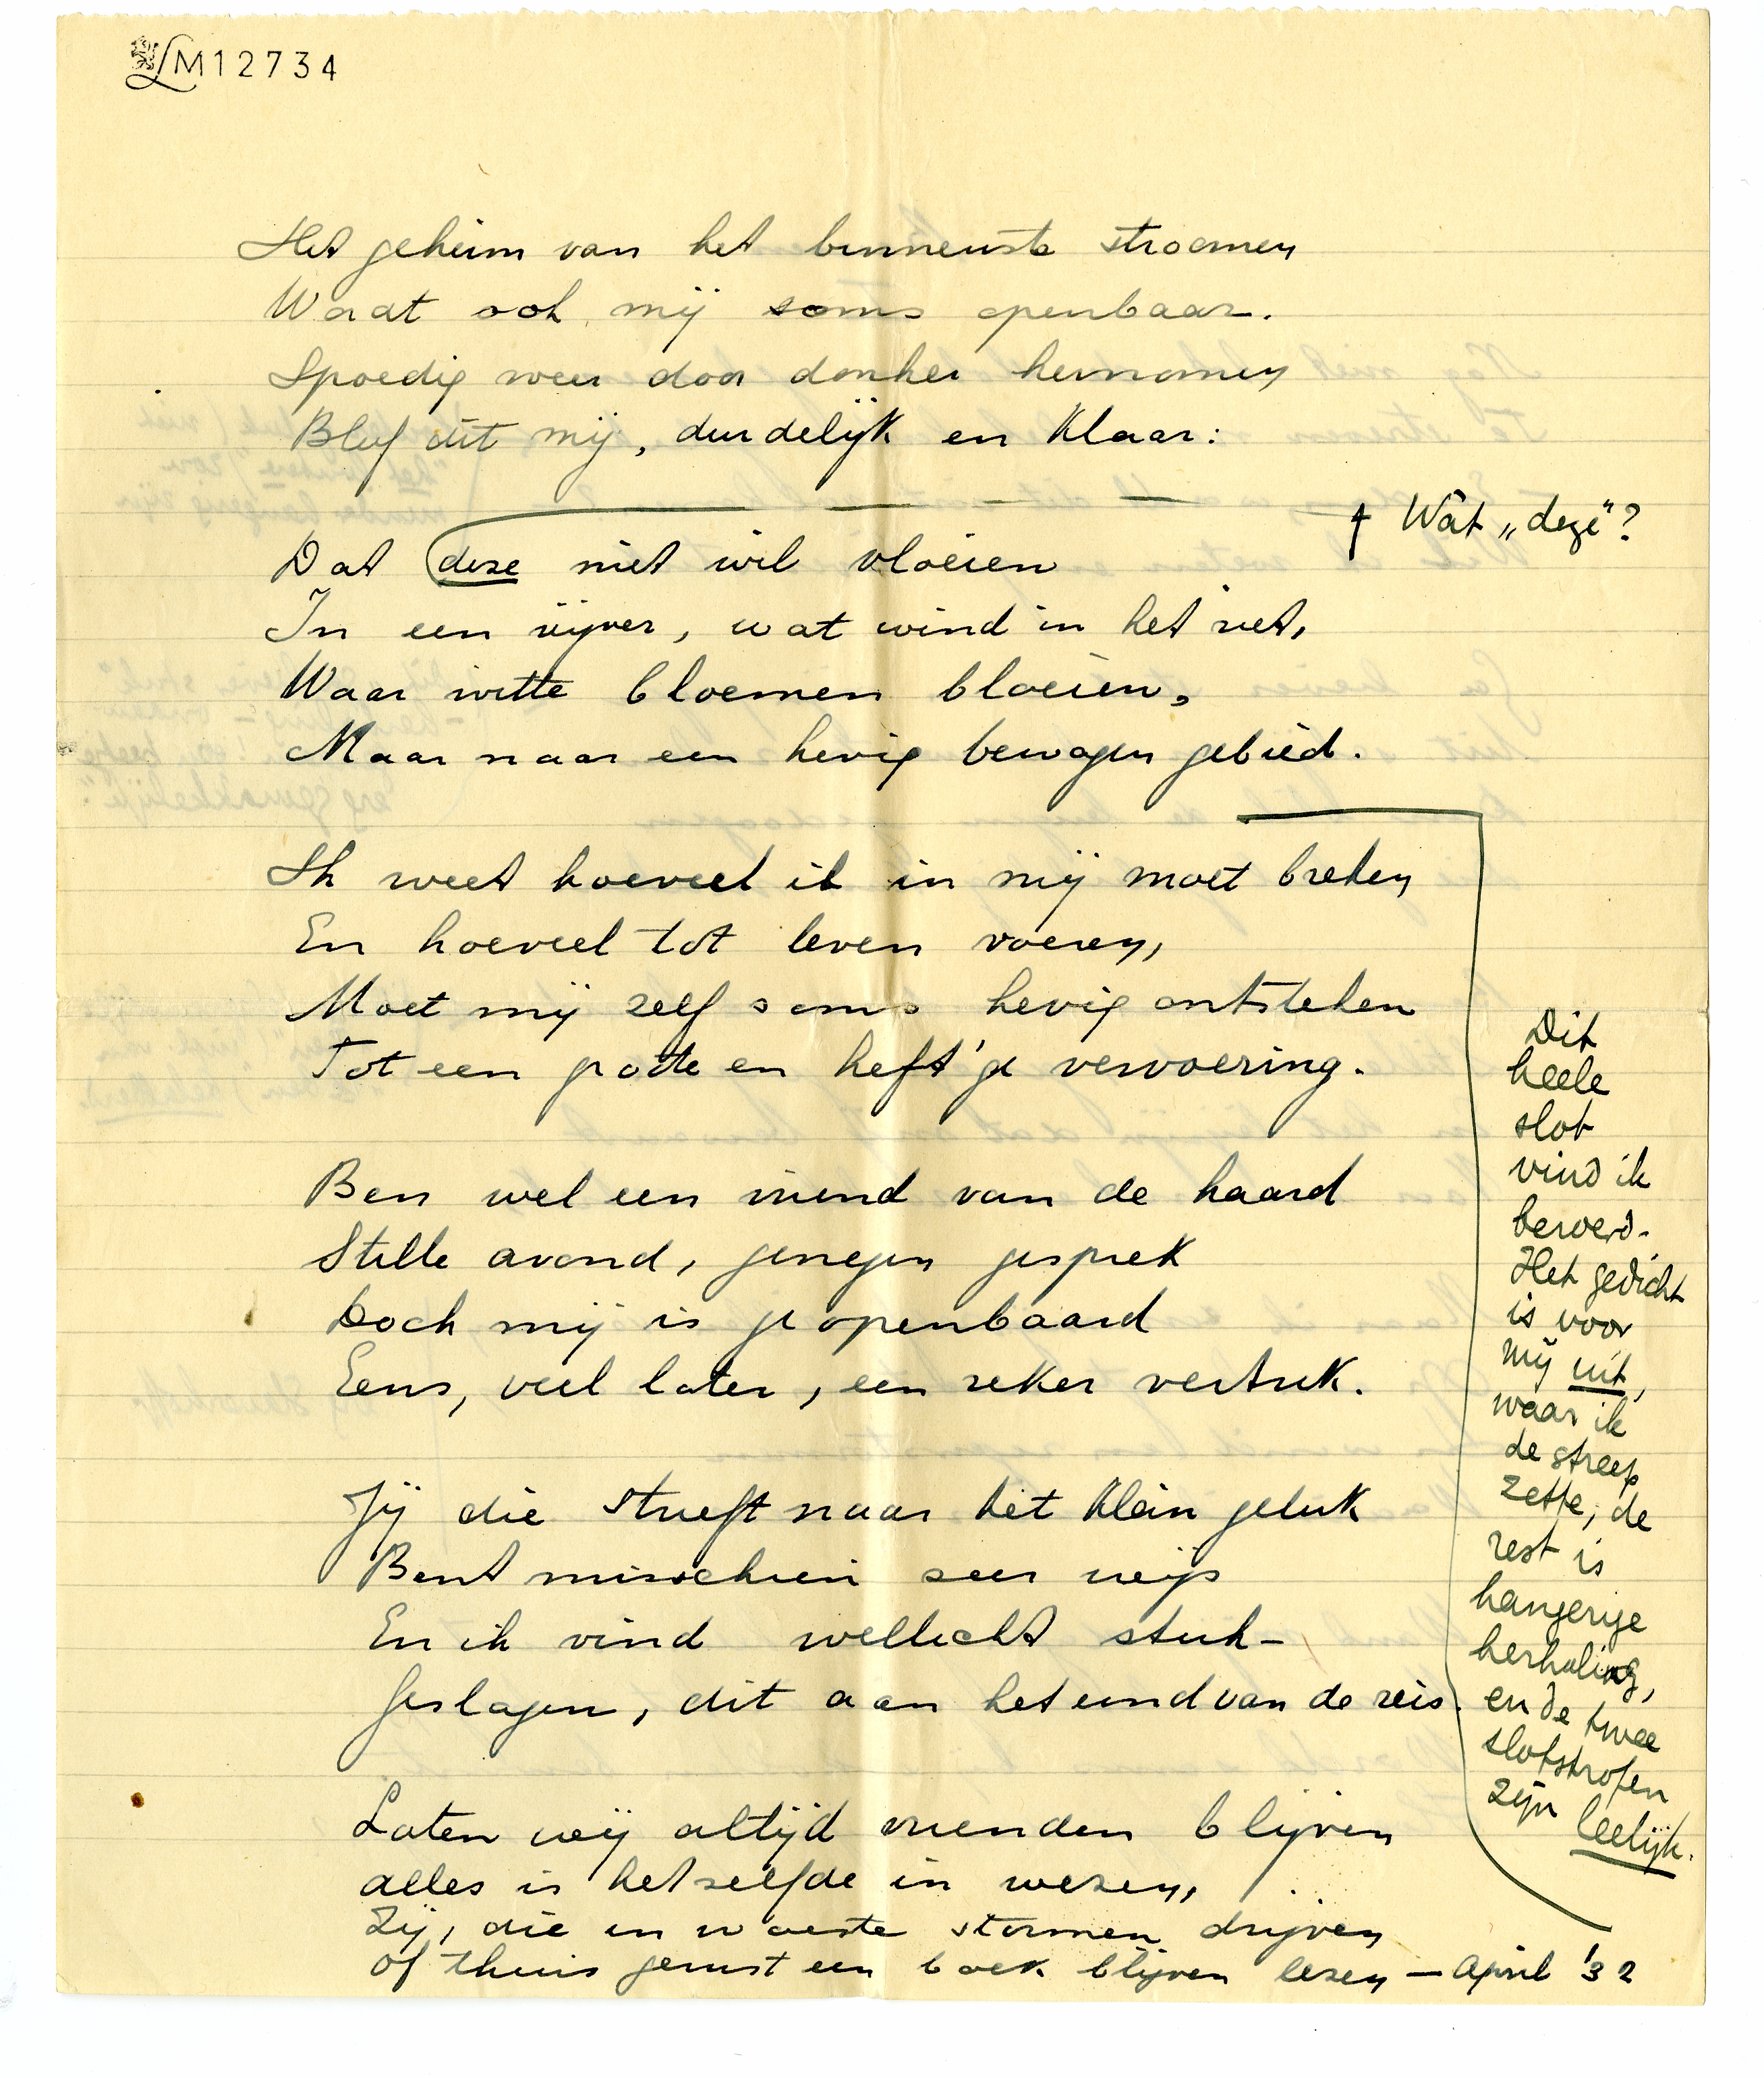 LM12734
Het geheim van het binnenste stroomen
Wordt ook mij soms openbaar.
Spoedig weer door donker hernomen
Bleef dit mij, duidelijk en klaar:
↑ Wàt „deze"?
Dat deze niet wil vloeien
In een vijver, wat wind in het riet,
Waar witte bloemen bloeien,
Maar naar een hevig bewogen gebied.
Ik weet hoeveel ik in mij moet breken
En hoeveel tot leven voeren,
Moet mij zelf soms hevig ontsteken
Tot een grootte en heft'ge vervoering.
Ben wel een vriend van de haard
Stille avond, genegen gesprek
Doch mij is geopenbaard
Eens, veel later, een zeker vertrek.
Jij die streeft naar het klein geluk
Bent misschien zeer wijs
En ik vind wellicht stuk-
geslagen, dit aan het eind van de reis.
Laten wij altijd vrienden blijven
alles is hetzelfde in wezen,
Zij, die in woeste stormen drijven
Of thuis gerust een boek blijven lezen — April '32
Dit
heele
slot
vind ik
beroerd.
Het gedicht
is voor
mij uit,
waar ik
de streep
zette; de
rest is
hangerige
herhaling,
en de twee
slotstrofen
zijn
leelijk.